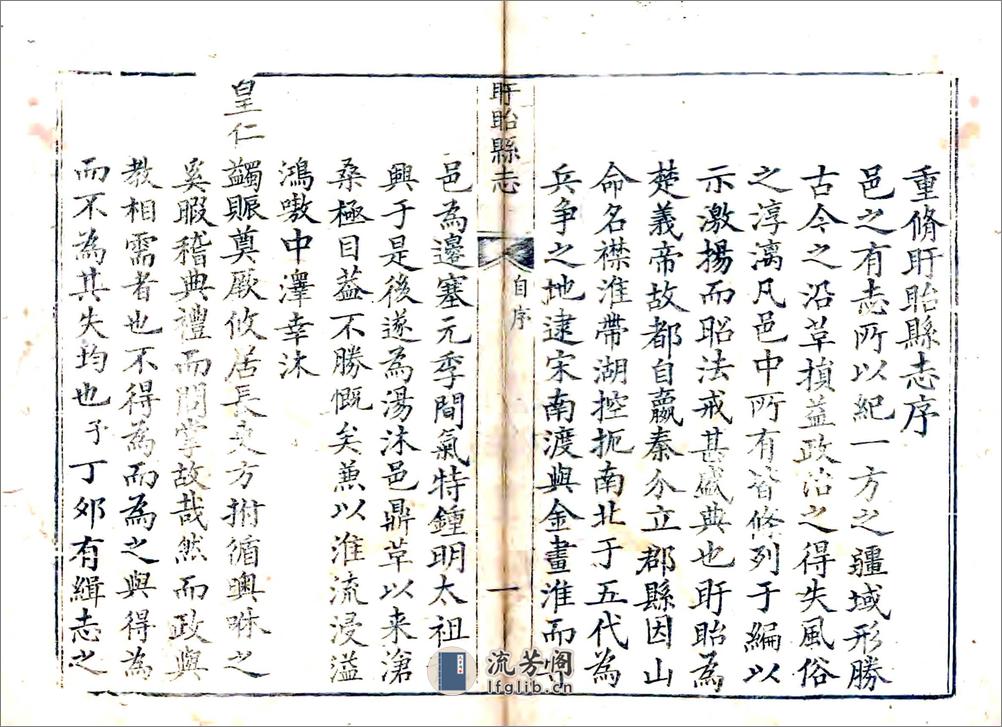 重脩盱眙縣志序
邑之有志所以紀一方之疆域形勝
古今之沿革損益政治之得失風俗
之淳漓凡邑中所有皆條列于編以
示激揚而昭法戒甚盛典也盱眙為
楚義帝故都自嬴秦分立郡縣因山
命名襟淮帶湖控扼南北于五代為
兵爭之地逮宋南渡與金畫淮而
盱眙縣志
自序
一
邑為邊塞元季間氣特鍾明太祖
興于是後遂為湯沐邑鼎革以来滄
桑極目葢不勝慨矣蕙以淮流浸溢
鴻嗷中澤幸沐
皇仁蠲賑奠厥攸居長吏方拊循噢咻之
奚暇稽典禮而問掌故哉然而政與
教相需者也不得為而為之與得為
而不為其失均也予丁夘有緝志之
流芳阁
lfglib.cn